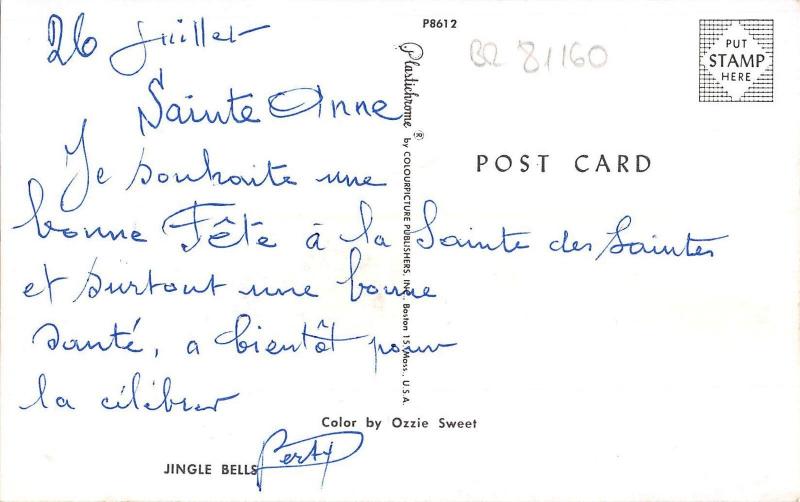 26 Juillet
Sainte Anne
Je souhaite une
bonne Fête à la Sainte des Saintes
et surtout une bonne
santé, a bientôt pour
la célébrer
P8612
BR 81160
PUT
STAMP
HERE
Plastichrome ® by COLOURPICTURE PUBLISHERS, INC., Boston 15, Mass., U.S.A.
POST CARD
Color by Ozzie Sweet
JINGLE BELLS